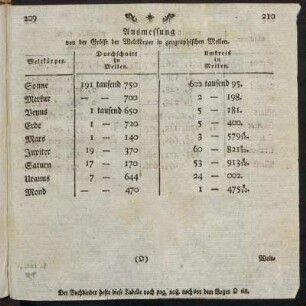 209 210
Ausmessung
von der Größe der Weltkörper in geographischen Meilen.
Weltkörper. Durchschnitt in Meilen. Umkreis in Meilen.
Sonne 191 tausend 750 602 tausend 95.
Merkur — — 700 2 — 198.
Venus 1 tausend 650 5 — 181.
Erde 1 — 720 5 — 400.
Mars 1 — 140 3 — 579
Jupiter 19 — 370 60 — 821
Saturn 17 — 170 53 — 913
Uranus 7 — 644 24 — 002.
Mond — — 470 1 — 475
(O) Welt=
Der Buchbinder hefte diese Tabelle nach pag. 208. noch vor dem Bogen O ein.